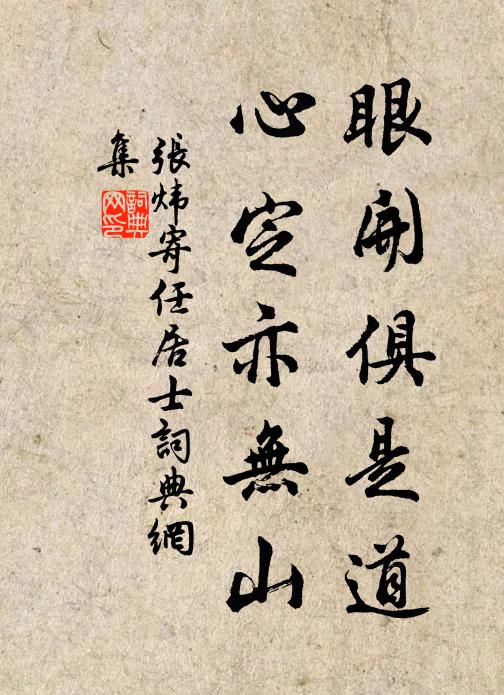 眼開俱是道
心定亦無山
張炜寄任居士詞典網
集
詞典
网印